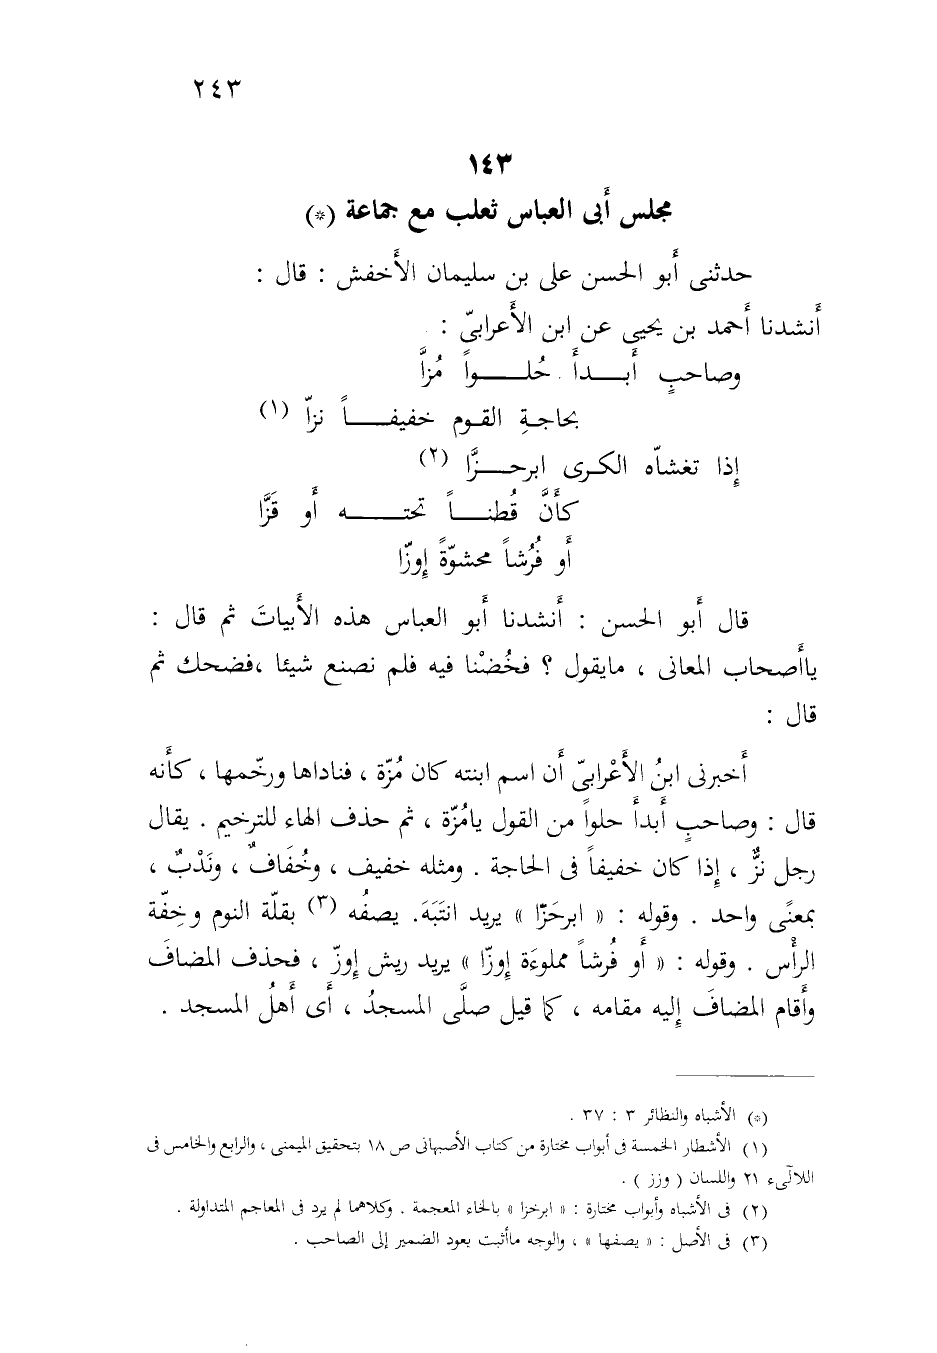 ٢٤٣
١٤٣
مجلس أبى العباس ثعلب مع جماعة (*)
حدثنى أبو الحسن على بن سليمان الأخفش : قال :
أنشدنا أحمد بن يحيى عن ابن الأعرابىّ :
وصاحبٍ أبــدأ حُلــــواً مُزاًّ
بحاجةِ القوم خفيفــــاً نزاّ (١)
إذا تغشاّه الكرى ابرحــزَّا (٢)
كأنَّ قُطنــــاً تحتــــه أو قَزَّا
أو فُرُشاً محشوّةً إوزّا
قال أبو الحسن : أنشدنا أبو العباس هذه الأبياتَ ثم قال :
ياأصحاب المعانى ، مايقول ؟ فخُضْنا فيه فلم نصنع شيئا ،فضحك ثم
قال :
أخبرنى ابنُ الأَعْرابىّ أن اسم ابنته كان مُزّة ، فناداها ورخّمها ، كأنه
قال : وصاحبٍ أبدأ حلواً من القول يامُزّة ، ثم حذف الهاء للترخيم . يقال
رجل نزٌّ ، إذا كان خفيفاً فى الحاجة . ومثله خفيف ، وخُفَافٌ ، ونَدْبٌ ،
بمعنًى واحد . وقوله : « ابرحَزّا » يريد انتَبَهَ. يصفُه (٣) بقلّة النوم وخِفّة
الرأْس . وقوله : « أو فُرشاً مملوءَة إوزّا » يريد ريش إوزّ ، فحذف المضافَ
وأقام المضافَ إليه مقامه ، كما قيل صلَّى المسجدُ ، أى أهلُ المسجد .
(*) الأشباه والنظائر ٣ : ٣٧ .
(١) الأشطار الخمسة فى أبواب مختارة من كتاب الأصبهانى ص ١٨ بتحقيق الميمنى ، والرابع والخامس فى
اللآلىء ٢١ واللسان ( وزز ) .
(٢) فى الأشباه وأبواب مختارة : « ابرخزا » بالخاء المعجمة . وكلاهما لم يرد فى المعاجم المتداولة .
(٣) فى الأصل : « يصفها » ، والوجه ماأثبت بعود الضمير إلى الصاحب .